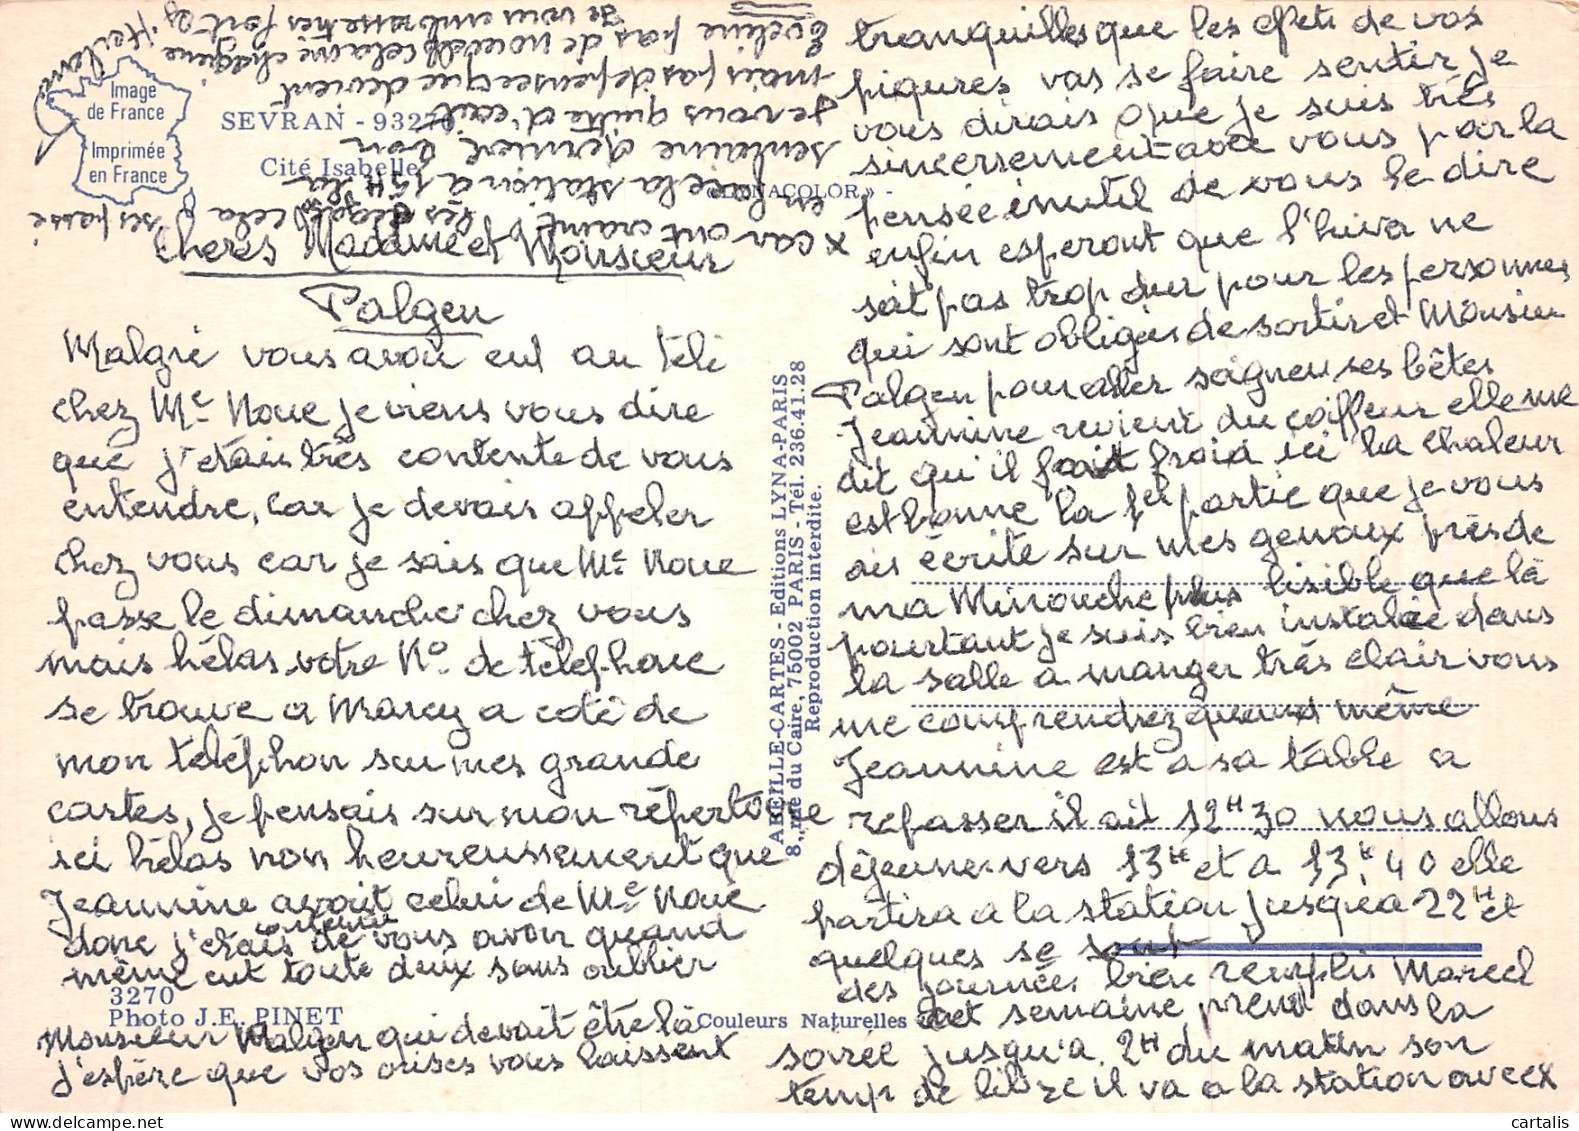 Image
de France
Imprimée
en France
SEVRAN - 93270
Cité Isabelle
COLOR» -
Chers Madame et Monsieur
Palgen
Malgré vous avoir eut au télé
chez Me Noue je viens vous dire
que j'étais très contente de vous
entendre, car je devais appeler
chez vous car je sais que Me Noue
passe le dimanche chez vous
mais hélas votre No. de téléphone
se trouve a Marcy a coté de
mon teléphon sur mes grande
cartes, je pensais sur mon répertoire
ici hélas non heureussement que
Jeannine avait celui de Me Noue
donc j'étais contente de vous avoir quand
même eut toute deux sans oublier
3270
Photo J.E. PINET
Monsieur Palgen qui devait être là
j'espère que vos crises vous laissent
ABEILLE-CARTES - Editions LYNA-PARIS
8, rue du Caire, 75002 PARIS - Tél. 236.41.28
Reproduction interdite.
Couleurs Naturelles
tranquilles que les effets de vos
piqures vas se faire sentir je
vous dirais que je suis très
sincersement avec vous par la
pensée inutil de vous le dire
enfin esperont que l'hiver ne
soit pas trop dur pour les personnes
qui sont obligés de sortir et Monsieur
Palgen pour aller soigner ses bêtes
Jeannine revient du coiffeur elle me
dit qu'il fait froid ici la chaleur
est bonne la partie que je vous
ais écrite sur mes genoux près de
ma Minouche plus lisible que là
pourtant je suis bien installée dans
la salle a manger très clair vous
me comprendrez quand même
Jeannine est a sa table a
repasser il ait 12H30 nous allons
déjeuner vers 13H et a 13H.40 elle
partira a la station jusqu'a 22H et
quelques se sont
des journées bien remplis Marcel
cet semaine prend dans la
soirée jusqu'a 2H du matin son
temp de libre il va a la station avec x
x car ont craint les dégats cela
ses passé
en face la station a 19H la
semaine dernière bon
je vous quitte d'ecrit
mais pas de pensée que devient
Eveline pas de nouvelle cela me chagrine
je vous embrasse très fort